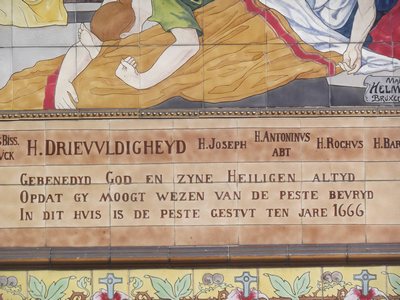 MA
HELM
BRUXE
BISS.
H. DRIEVVLDIGHEYD H. JOSEPH H. ANTONINVS ABT H. ROCHVS H. BAR
GEBENEDYD GOD EN ZYNE HEILIGEN ALTYD
OPDAT GY MOOGT WEZEN VAN DE PESTE BEVRYD
IN DIT HVIS IS DE PESTE GESTVT TEN JARE 1666